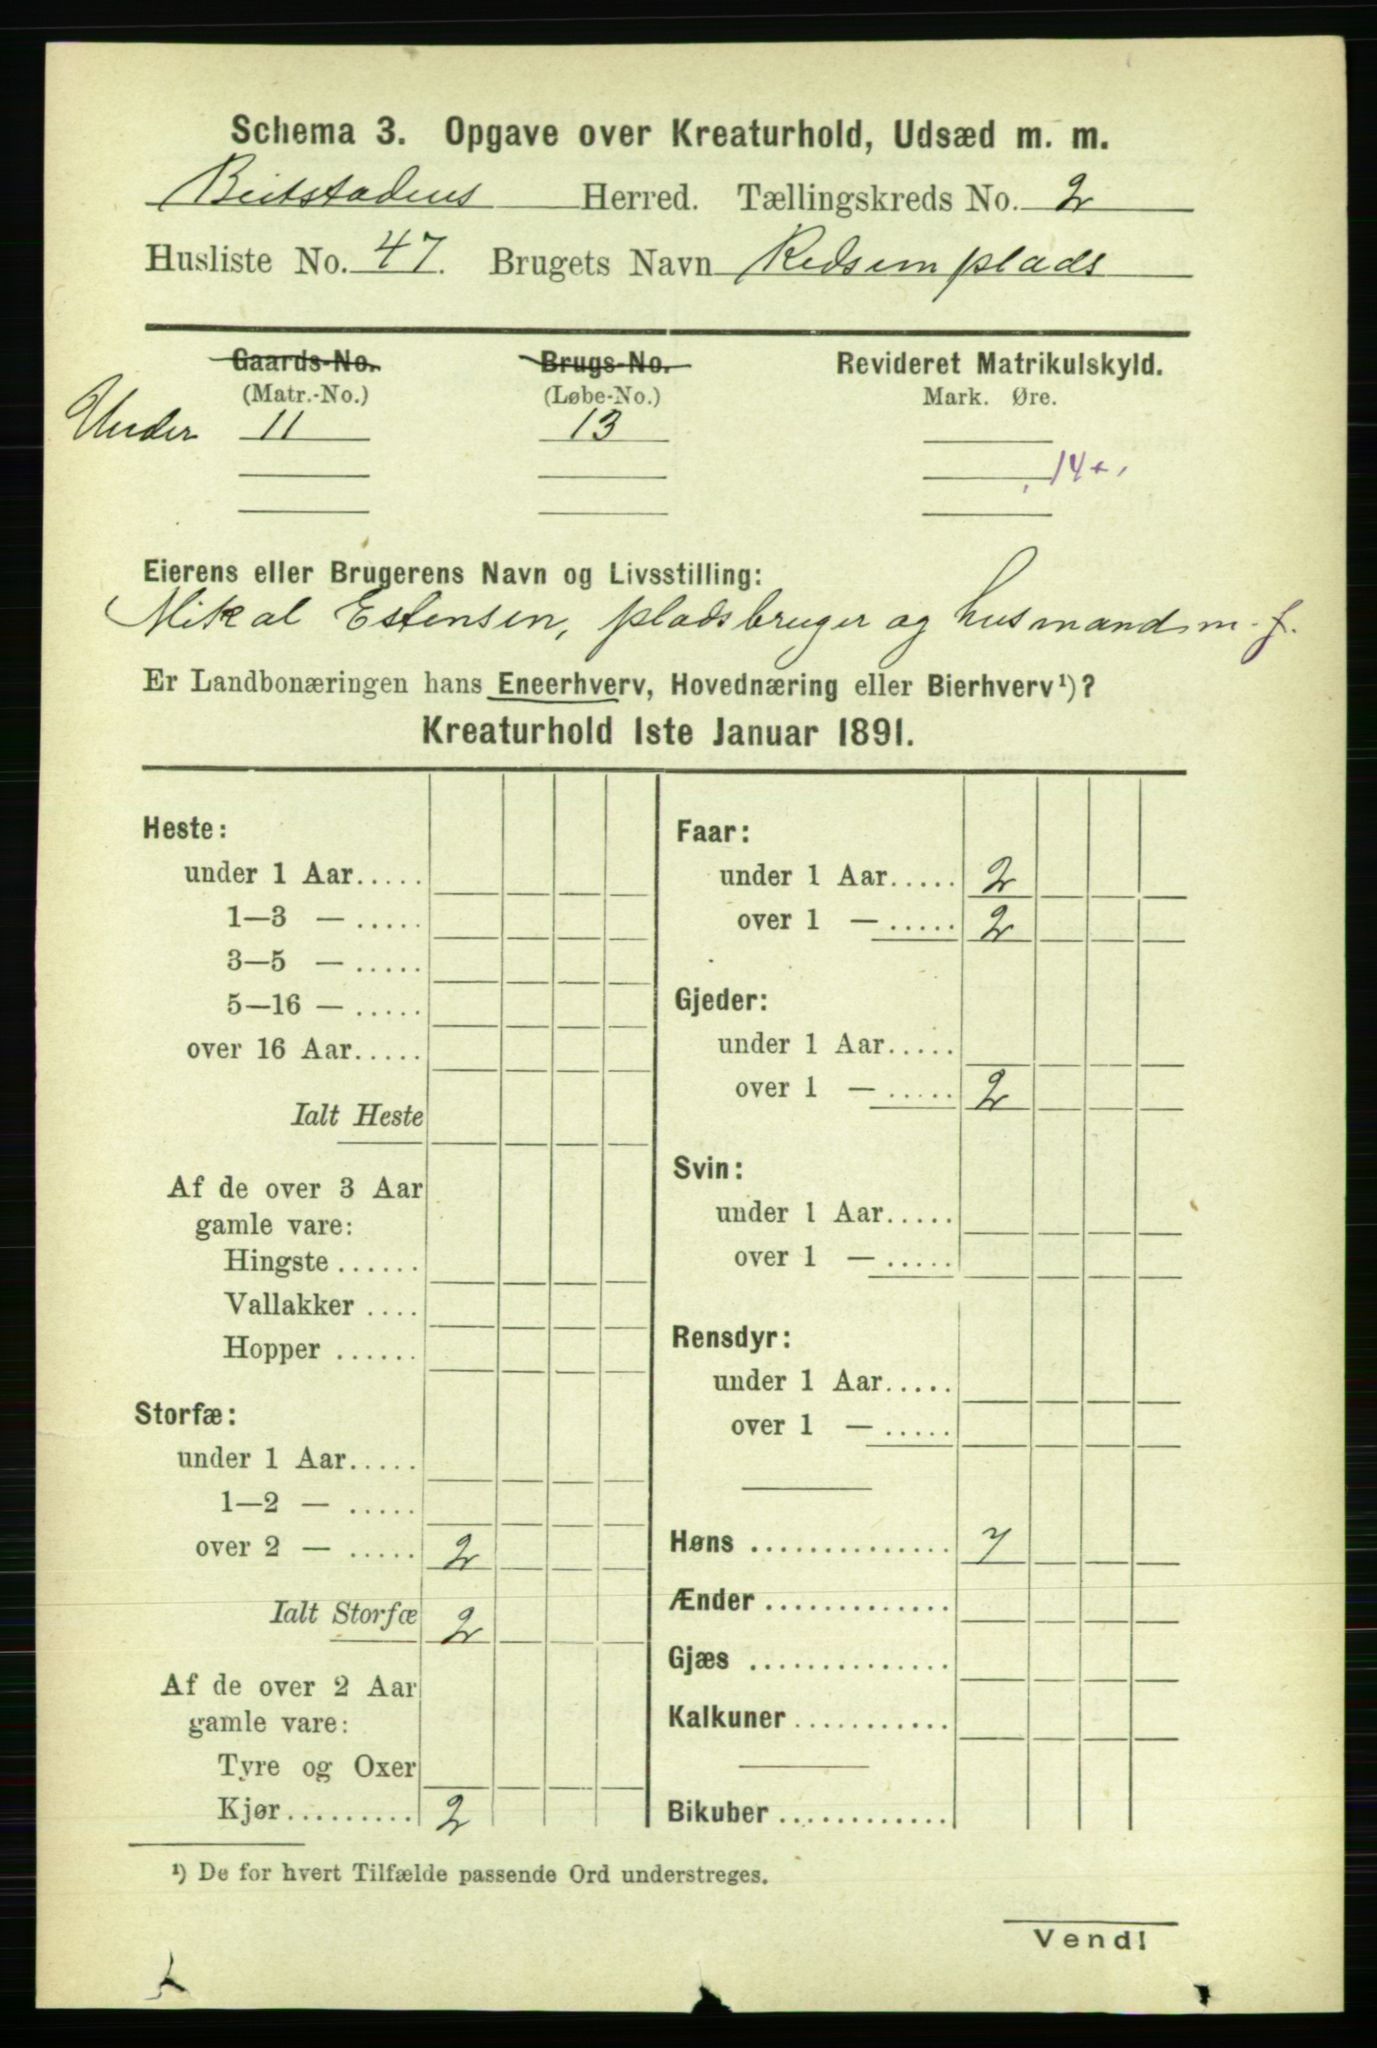 Schema 3. Opgave over Kreaturhold, Udsæd m. m.
Beitstadens Herred. Tællingskreds No. 2
Husliste No. 47. Brugets Navn Redsemplads
Gaards-No. Brugs-No. Revideret Matrikulskyld.
(Matr.-No.) (Løbe-No.) Mark. Øre.
Under 11 13
14+
Eierens eller Brugerens Navn og Livsstilling:
Mikal Estensen, pladsbruger og husmand m. f.
Er Landbonæringen hans Eneerhverv, Hovednæring eller Bierhverv¹)?
Kreaturhold 1ste Januar 1891.
Heste:
under 1 Aar.....
1—3 — .....
3—5 — .....
5—16 — .....
over 16 Aar.....
Ialt Heste
Af de over 3 Aar
gamle vare:
Hingste ......
Vallakker ....
Hopper ......
Storfæ:
under 1 Aar.....
1—2 — .....
over 2 — ..... 2
Ialt Storfæ 2
Af de over 2 Aar
gamle vare:
Tyre og Oxer
Kjør.......... 2
Faar:
under 1 Aar..... 2
over 1 — ..... 2
Gjeder:
under 1 Aar.....
over 1 — ..... 2
Svin:
under 1 Aar.....
over 1 — .....
Rensdyr:
under 1 Aar.....
over 1 — .....
Høns .............. 7
Ænder .............
Gjæs ..............
Kalkuner...........
Bikuber ............
¹) De for hvert Tilfælde passende Ord understreges.
Vend!